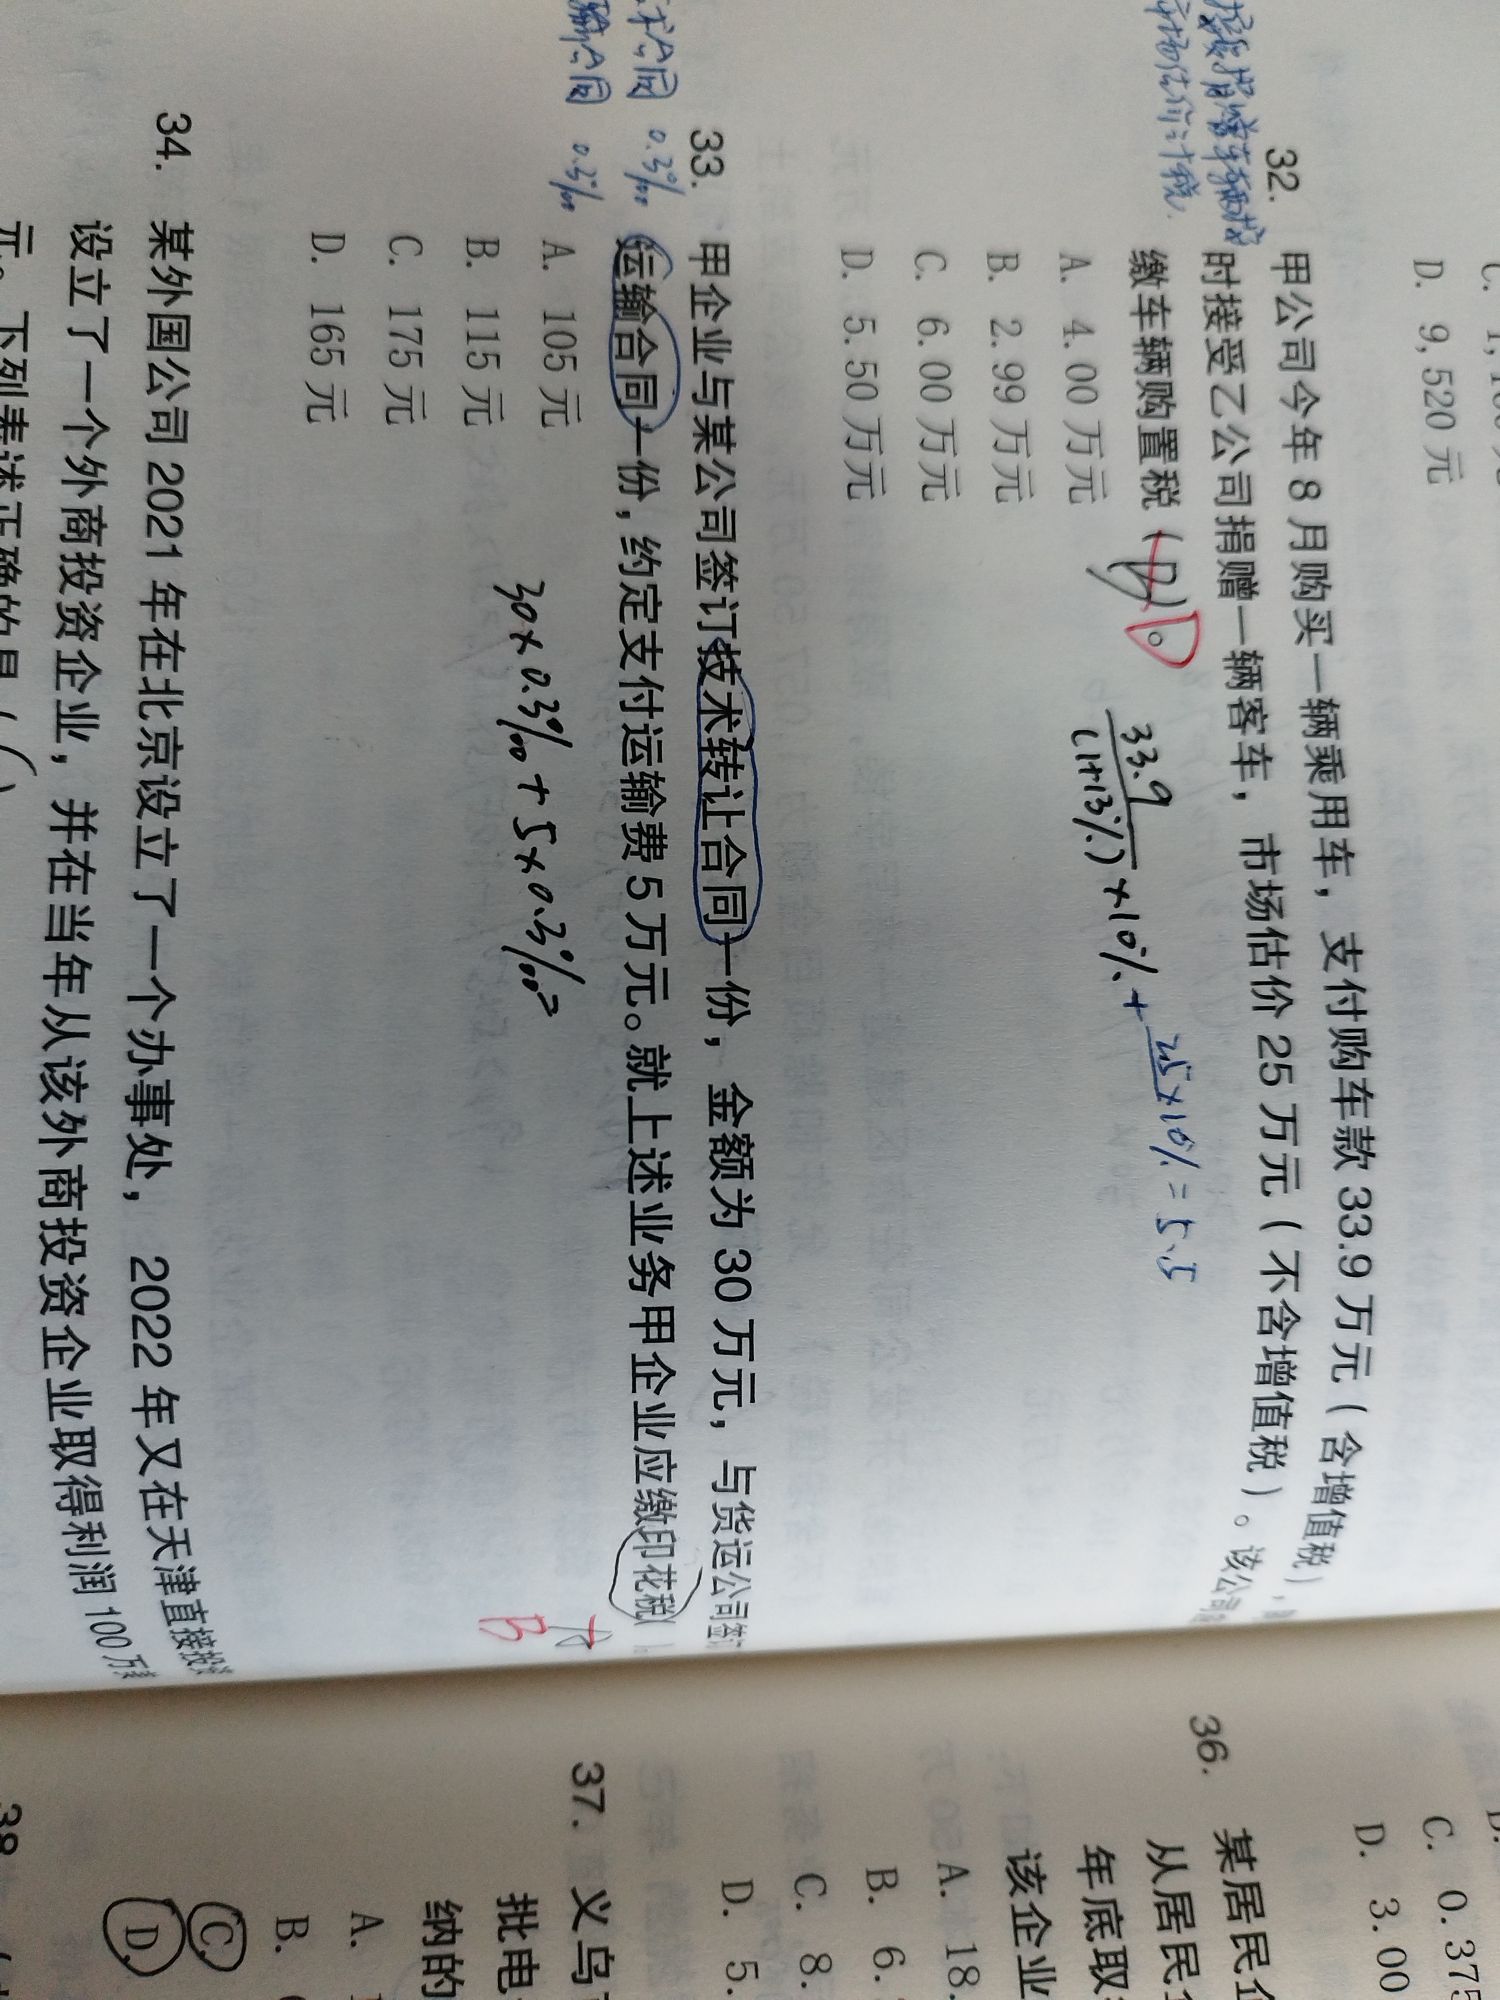 D. 9,520元
32. 甲公司今年8月购买一辆乘用车，支付购车款33.9万元（含增值税），
时接受乙公司捐赠一辆客车，市场估价25万元（不含增值税）。该公司
缴车辆购置税（D）。
D
A. 4.00万元
B. 2.99万元
C. 6.00万元
D. 5.50万元
市场估价计税
33.9
(1+13%) ×10% + 25×10% = 5.5
33. 甲企业与某公司签订技术转让合同一份，金额为30万元，与货运公司签订
运输合同一份，约定支付运输费5万元。就上述业务甲企业应缴印花税（
术合同 0.3‰
输合同 0.3‰
A. 105元
B. 115元
C. 175元
D. 165元
30×0.3‰+5×0.3‰=
B
34. 某外国公司2021年在北京设立了一个办事处，2022年又在天津直接投资
设立了一个外商投资企业，并在当年从该外商投资企业取得利润100万
元。下列表述正确的是（ ）
C. 0.375
D. 3.00
36. 某居民企
从居民企
年底取
该企业
A. 18.
B. 6.
C. 8.
D. 5.
37. 义乌
批电
纳的
A.
B.
C
D.
38